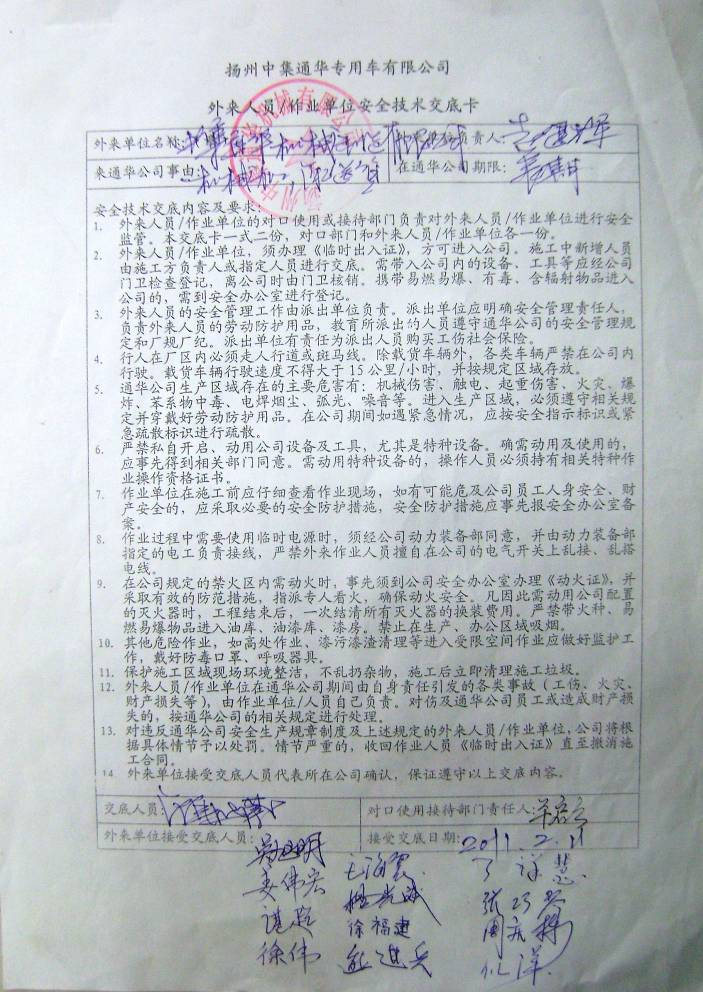 扬州中集通华专用车有限公司
外来人员/作业单位安全技术交底卡
外来单位名称: 机械 有限公司 负责人:
来通华公司事由: 机械加工, 在通华公司期限: 长期
安全技术交底内容及要求:
1. 外来人员/作业单位的对口使用或接待部门负责对外来人员/作业单位进行安全
监管。本交底卡一式二份,对口部门和外来人员/作业单位各一份。
2. 外来人员/作业单位,须办理《临时出入证》,方可进入公司。施工中新增人员
由施工方负责人或指定人员进行交底。需带入公司内的设备、工具等应经公司
门卫检查登记,离公司时由门卫核销。携带易燃易爆、有毒、含辐射物品进入
公司的,需到安全办公室进行登记。
3. 外来人员的安全管理工作由派出单位负责。派出单位应明确安全管理责任人,
负责外来人员的劳动防护用品,教育所派出的人员遵守通华公司的安全管理规
定和厂规厂纪。派出单位有责任为派出人员购买工伤社会保险。
4. 行人在厂区内必须走人行道或斑马线。除载货车辆外,各类车辆严禁在公司内
行驶。载货车辆行驶速度不得大于15公里/小时,并按规定区域存放。
5. 通华公司生产区域存在的主要危害有:机械伤害、触电、起重伤害、火灾、爆
炸、苯系物中毒、电焊烟尘、弧光、噪音等。进入生产区域,必须遵守相关规
定并穿戴好劳动防护用品。在公司期间如遇紧急情况,应按安全指示标识或紧
急疏散标识进行疏散。
6. 严禁私自开启、动用公司设备及工具,尤其是特种设备。确需动用及使用的,
应事先得到相关部门同意。需动用特种设备的,操作人员必须持有相关特种作
业操作资格证书。
7. 作业单位在施工前应仔细查看作业现场,如有可能危及公司员工人身安全、财
产安全的,应采取必要的安全防护措施,安全防护措施应事先报安全办公室备
案。
8. 作业过程中需要使用临时电源时,须经公司动力装备部同意,并由动力装备部
指定的电工负责接线,严禁外来作业人员擅自在公司的电气开关上乱接、乱搭
电线。
9. 在公司规定的禁火区内需动火时,事先须到公司安全办公室办理《动火证》,并
采取有效的防范措施,指派专人看火,确保动火安全。凡因此需动用公司配置
的灭火器时,工程结束后,一次结清所有灭火器的换装费用。严禁带火种、易
燃易爆物品进入油库、油漆库、漆房。禁止在生产、办公区域吸烟。
10. 其他危险作业,如高处作业、漆污漆渣清理等进入受限空间作业应做好监护工
作,戴好防毒口罩、呼吸器具。
11. 保护施工区域现场环境整洁,不乱扔杂物,施工后立即清理施工垃圾。
12. 外来人员/作业单位在通华公司期间由自身责任引发的各类事故(工伤、火灾、
财产损失等),由作业单位/人员自己负责。对伤及通华公司员工或造成财产损
失的,按通华公司的相关规定进行处理。
13. 对违反通华公司安全生产规章制度及上述规定的外来人员/作业单位,公司将根
据具体情节予以处罚。情节严重的,收回作业人员《临时出入证》直至撤消施
工合同。
14 外来单位接受交底人员代表所在公司确认,保证遵守以上交底内容。
交底人员: 对口使用接待部门责任人:
外来单位接受交底人员: 接受交底日期: 2011.2.11
姜伟宏
谌超 徐福建
徐伟